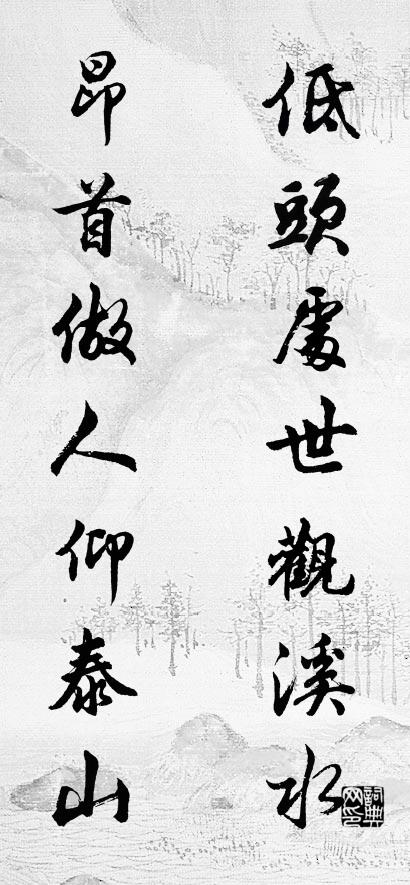 低頭處世觀溪水
昂首做人仰泰山
詞典網印